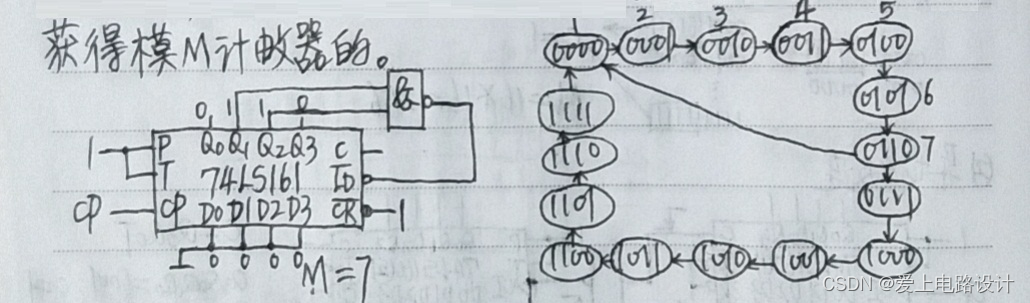 获得模M计数器的。
0 1 1 0
&
1 P Q0 Q1 Q2 Q3 C
T 74LS161 LD
CP CP D0 D1 D2 D3 CR 1
0 0 0 0
M=7
1 2 3 4 5
0000 0001 0010 0011 0100
1111 0101 6
1110 0110 7
1101 0111
1100 1011 1010 1001 1000
CSDN @爱上电路设计